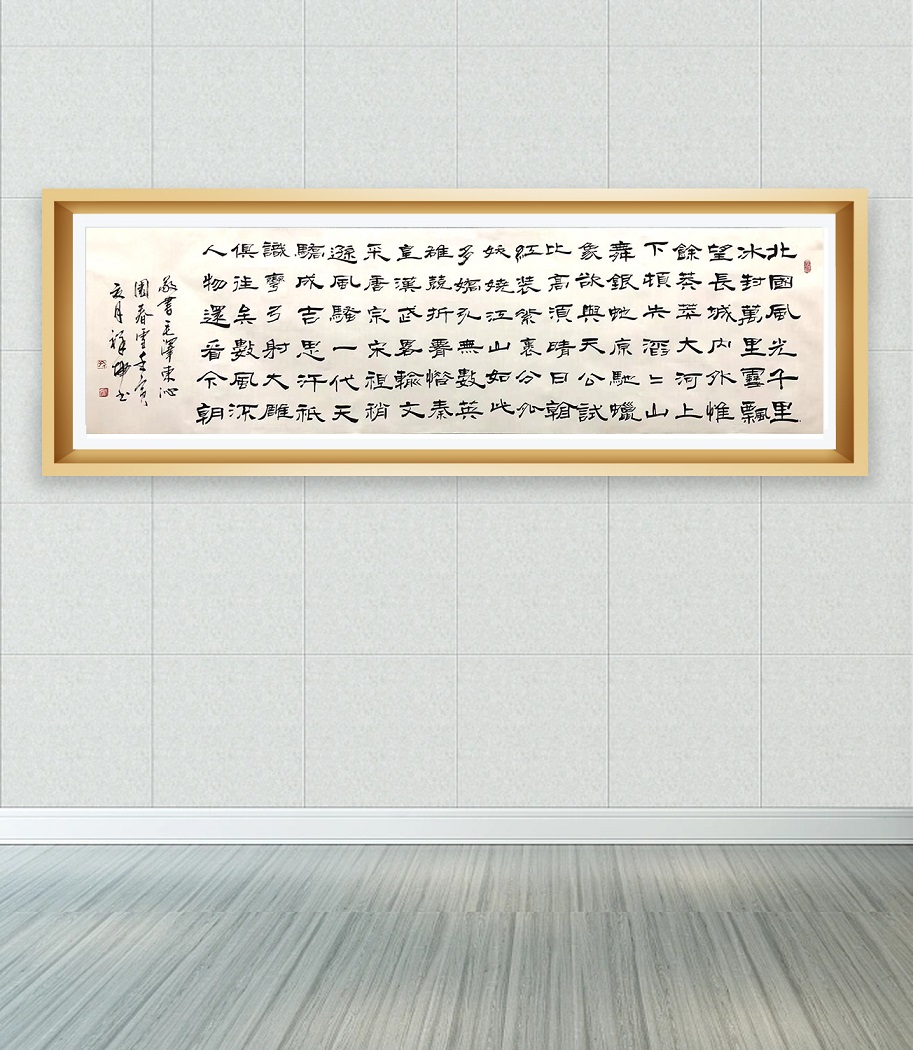 北國風光千里
冰封萬里雪飄
望長城内外惟
餘莽莽大河上
下頓失滔〻山
舞銀蛇原馳蠟
象欲與天公試
比高須晴日看
紅裝素裹分外
妖嬈江山如此
多嬌引無數英
雄競折腰惜秦
皇漢武略輸文
采唐宗宋祖稍
遜風騷一代天
驕成吉思汗祇
識彎弓射大雕
俱往矣數風流
人物還看今朝
敬書毛澤東沁
園春雪壬寅
玄月祥坤书